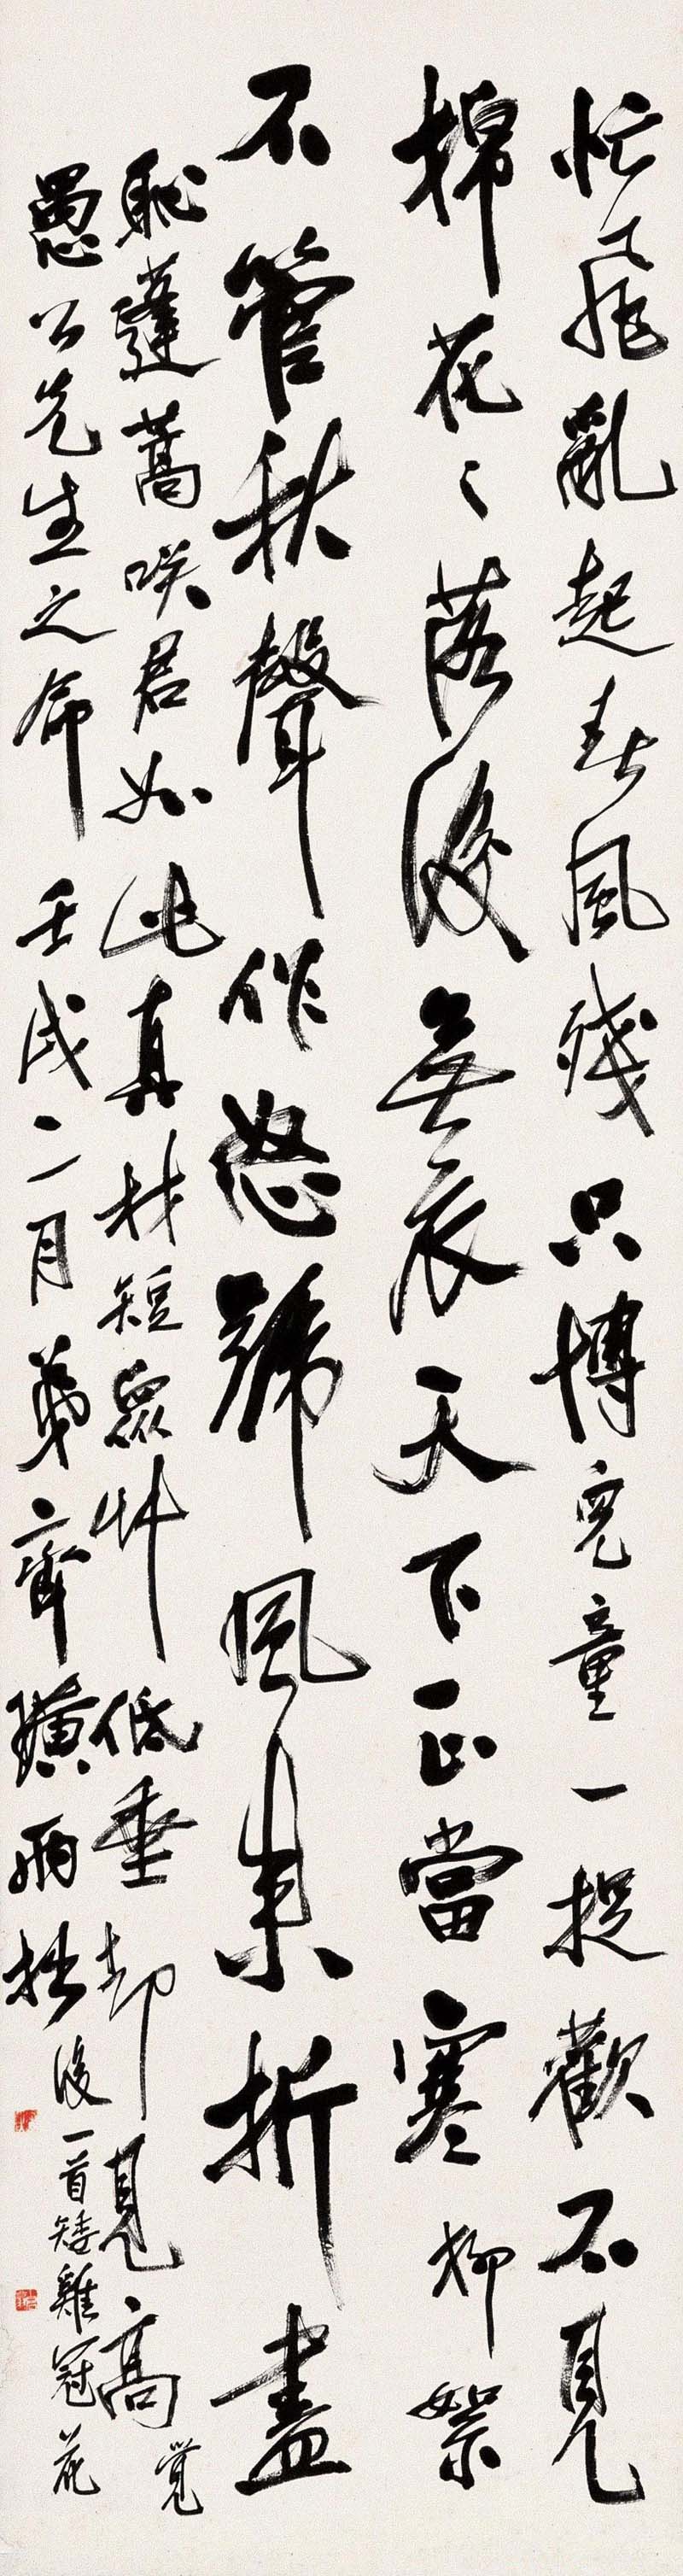 忙飛亂起春風殘只博兒童一捉歡不見
棉花々落後無衣天下正當寒柳絮
不管秋聲作怒號風來折盡
恥蓬蒿咲君如此真材短眾艸低垂却見高覺
愚公先生之命壬戌二月弟齊璜兩拙
後一首矮雞冠花